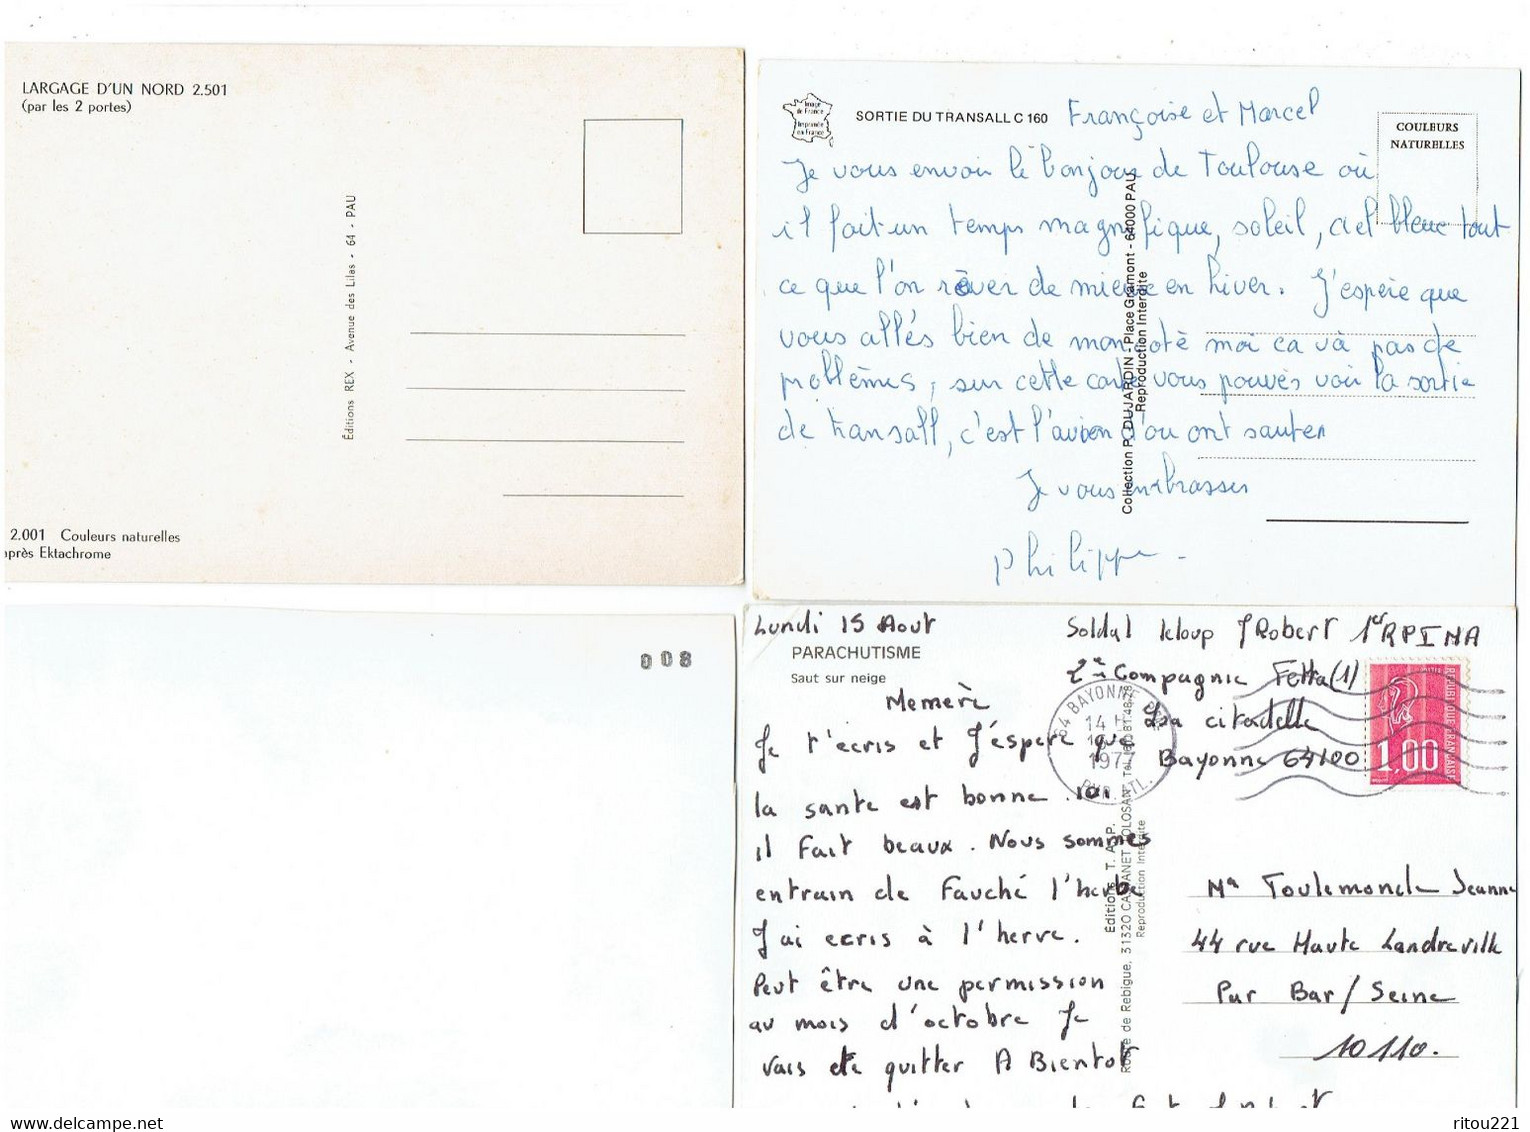 LARGAGE D'UN NORD 2.501
(par les 2 portes)
Éditions REX - Avenue des Lilas - 64 - PAU
2.001 Couleurs naturelles
après Ektachrome
Image
de France
Imprimée
en France
SORTIE DU TRANSALL C 160
COULEURS
NATURELLES
Françoise et Marcel
Je vous envoir le bonjour de Toulouse où
il fait un temps magnifique, soleil, ciel bleue tout
ce que l'on rêver de mieux en hiver. J'espère que
vous allés bien de mon côtè moi ca và pas de
problèmes, sur cette carte vous pouvès voir la sortie
de transall, c'est l'avion d'ou ont sauter
Je vous embrasser
Philippe -
Collection P. DUJARDIN - Place Gramont - 64000 PAU
Reproduction Interdite
008
Lundi 15 Aout
PARACHUTISME
Saut sur neige
Soldat Leloup J Robert 1er RPIMA
2e Compagnie
La citadelle
Bayonne 64100
64 BAYONNE
14 H
1977
REPUBLIQUE FRANÇAISE
1,00
Memerè
Je t'ecris et J'éspere que
la sante est bonne. Ici
il Fait beaux. Nous sommes
entrain de Fauché l'herbe
J'ai ecris à l'herve.
Peut être une permission
au mois d'octobre Je
vais te quitter A Bientot
Éditions T. A. P.
Route de Rebigue, 31320 CASTANET TOLOSAN
Reproduction Interdite
Toulemonde Jeanne
44 rue Haute Landreville
Par Bar/Seine
10110.
ritou221